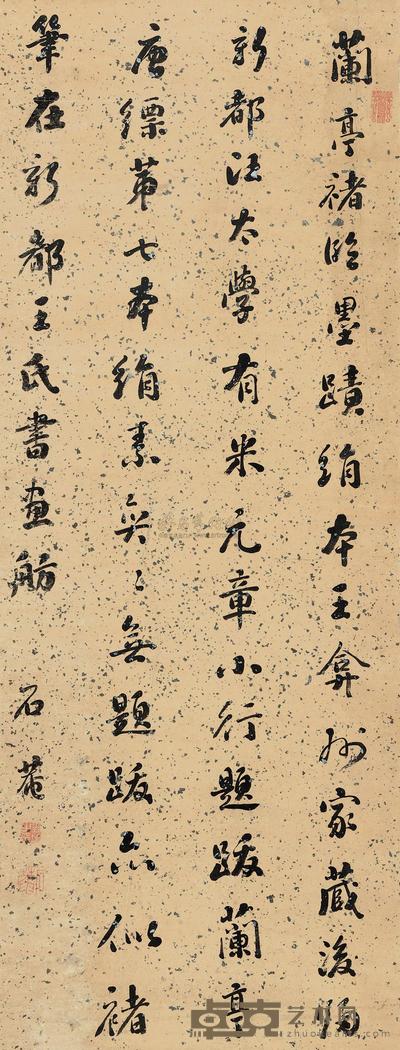 蘭亭褚臨墨蹟絹本王弇州家藏後歸
新都汪太學有米元章小行題跋蘭亭
唐縹第七本絹素奕〻無題跋亦似褚
筆在新都王氏書畫舫
石菴
卓克艺术网
zhuokearts.com